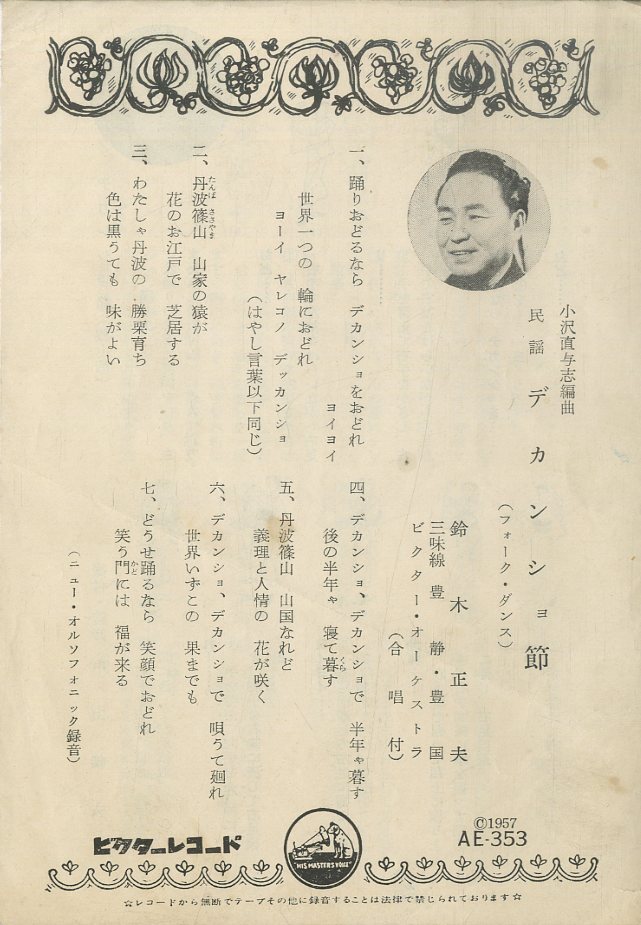 小沢直与志編曲
民謡 デカンショ節
（フォーク・ダンス）
鈴木正夫
三味線 豊静・豊国
ビクター・オーケストラ
（合唱付）
一、踊りおどるなら デカンショをおどれ
ヨイヨイ
世界一つの 輪におどれ
ヨーイ ヤレコノ デッカンショ
（はやし言葉以下同じ）
二、丹波篠山 山家の猿が
たんば ささやま
花のお江戸で 芝居する
三、わたしゃ丹波の 勝栗育ち
色は黒うても 味がよい
四、デカンショ、デカンショで 半年ゃ暮す
後の半年ゃ 寝て暮す
くら
五、丹波篠山 山国なれど
義理と人情の 花が咲く
六、デカンショ、デカンショで 唄うて廻れ
世界いずこの 果までも
七、どうせ踊るなら 笑顔でおどれ
笑う門には 福が来る
かど
（ニュー・オルソフォニック録音）
©1957
AE-353
HIS MASTER'S VOICE
ビクターレコード
☆レコードから無断でテープその他に録音することは法律で禁じられております☆